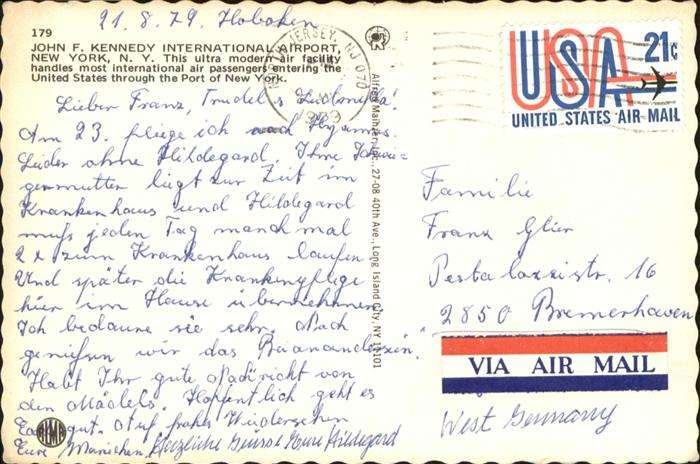 21.8.79 Hoboken
179
JOHN F. KENNEDY INTERNATIONAL AIRPORT,
NEW YORK, N. Y. This ultra modern air facility
handles most international air passengers entering the
United States through the Port of New York.
Lieber Franz, Trudel
Am 23. fliege ich nach
Leider ohne Hildegard. Ihre Schwie-
germutter liegt zur Zeit im
Krankenhaus und Hildegard
muß jeden Tag manchmal
2x zum Krankenhaus laufen
Und später die Krankenpflege
hier im Hause übernehmen.
Ich bedaure sie sehr. Noch
genießen wir das Beieinandersein.
Habt Ihr gute Nachricht von
den Mädels. Hoffentlich geht es
Euch gut. Auf frohes Wiedersehen
Eure Mariechen Herzliche Grüsse Eure Hildegard
Alfred Mainzer, Inc., 27-08 40th Ave., Long Island City, NY 11101
NEW JERSEY, NJ 070
USA 21c
UNITED STATES AIR MAIL
Familie
Franz Glier
Pestalozzistr. 16
2850 Bremerhaven
VIA AIR MAIL
West Germany
ALMA